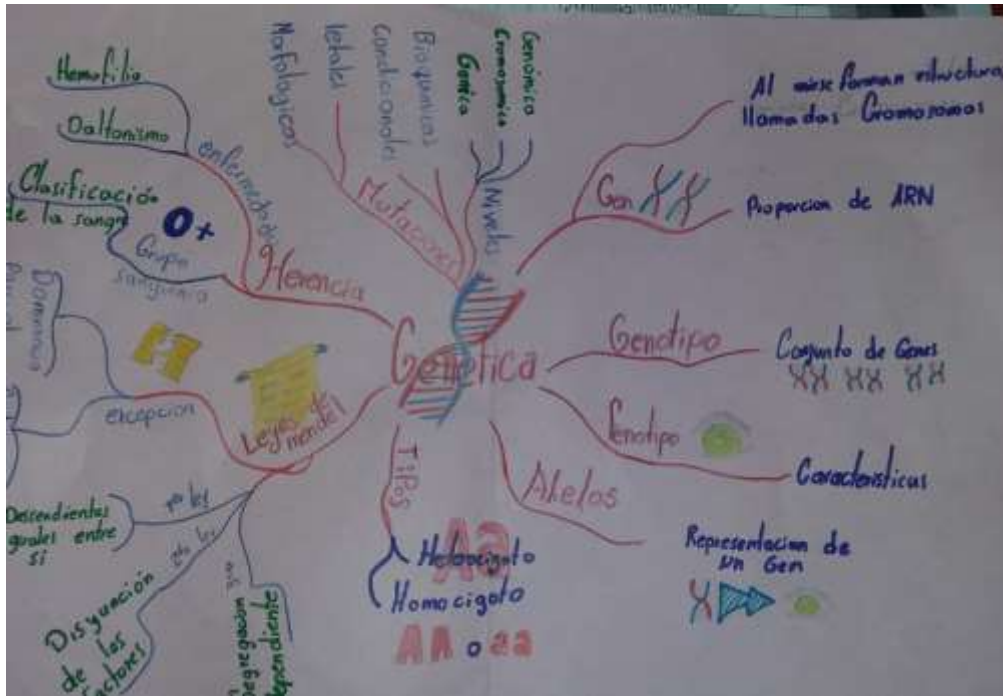 Genética
Gen
Al
forman estructura
llamadas Cromosomas
Proporcion de ARN
Genotipo
Conjunto de Genes
Fenotipo
Caracteristicas
Alelos
Representacion de
un Gen
TiPos
Aa
Homocigoto
AA o aa
Leyes de
mendel
excepcion
Descendientes
guales entre
si
Disyunción
de los
actores
egregación
ependiente
Herencia
enfermedades
Hemofilia
Daltonismo
Grupo
O+
Clasificación
de la sangre
Mutaciones
letales
condicionales
Niveles
Genico
Cromosomico
Genómico